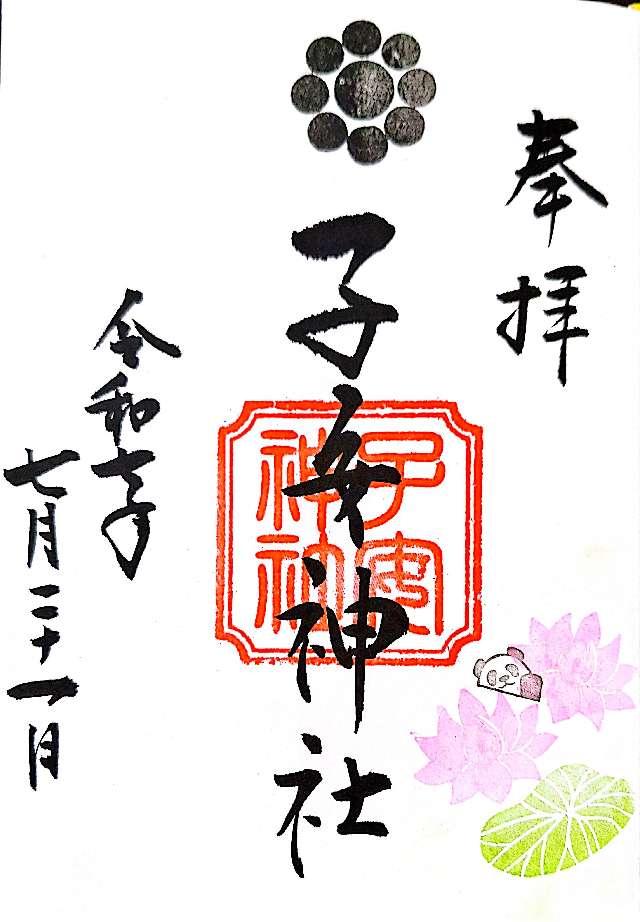 奉拝
子安神社
子安神社
令和七年
七月二十一日